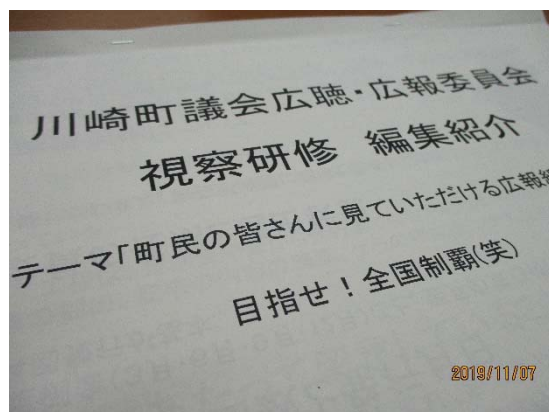 川崎町議会広聴・広報委員会
視察研修 編集紹介
テーマ「町民の皆さんに見ていただける広報
目指せ！全国制覇(笑)
2019/11/07